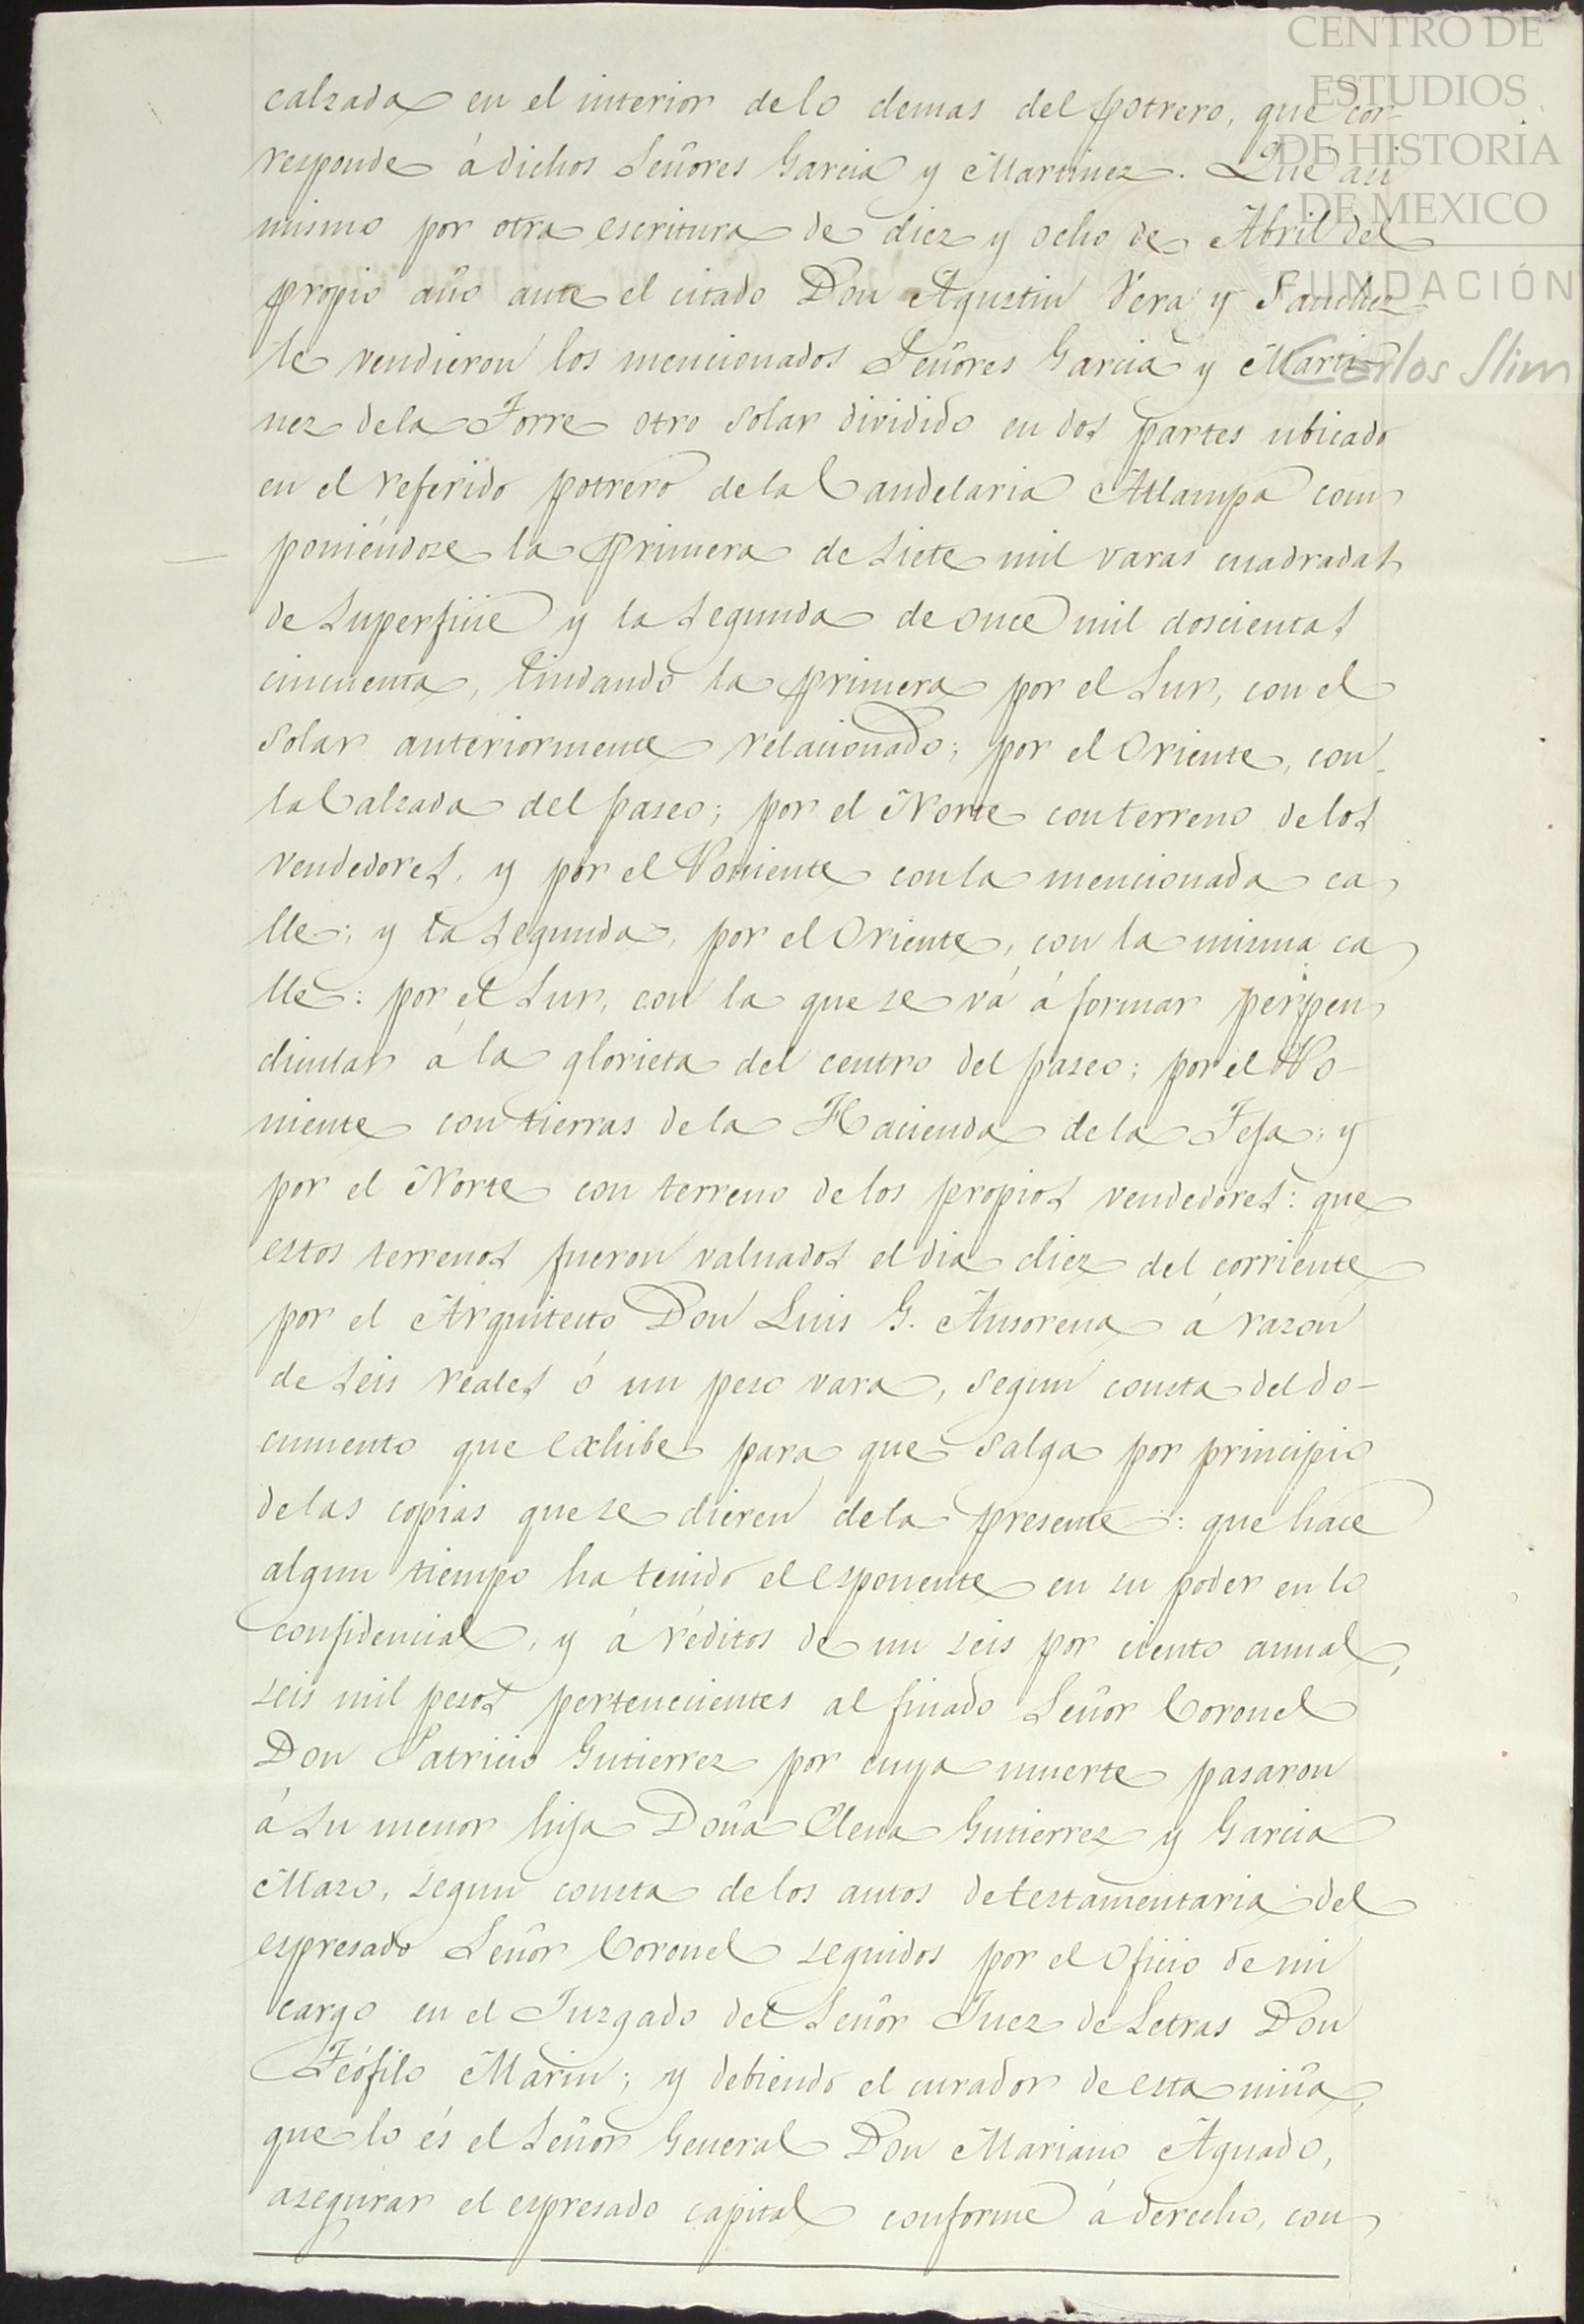 CENTRO DE
ESTUDIOS
DE HISTORIA
DE MEXICO
FUNDACIÓN
Carlos Slim
calzada en el interior de lo demas del potrero, que cor-
responde á dichos Señores Garcia y Martinez. Que asi
mismo por otra escritura de diez y ocho de Abril del
propio año ante el citado Don Agustin Vera y Sanchez
le vendieron los mencionados Señores Garcia y Marti-
nez de la Torre otro solar dividido en dos partes ubicado
en el referido potrero de la Candelaria Atlampa com
poniéndose la primera de siete mil varas cuadradas
de superficie y la segunda de once mil doscientas
cincuenta, lindando la primera por el Sur, con el
solar anteriormente relacionado; por el Oriente, con
la Calzada del paseo; por el Norte con terreno de los
vendedores, y por el Poniente con la mencionada ca
lle; y la segunda, por el Oriente, con la misma ca
lle: por el Sur, con la que se vá á formar perpen
dicular á la glorieta del centro del paseo; por el Po-
niente con tierras de la Hacienda de la Teja; y
por el Norte con terreno de los propios vendedores: que
estos terrenos fueron valuados el dia diez del corriente
por el Arquitecto Don Luis G. Ansorena á razon
de seis reales ó un peso vara, segun consta del do-
cumento que exhibe para que salga por principio
de las copias que se dieren de la presente: que hace
algun tiempo ha tenido el esponente en su poder en lo
confidencial, y á réditos de un seis por ciento anual,
seis mil pesos pertenecientes al finado Señor Coronel
Don Patricio Gutierrez por cuya muerte pasaron
á su menor hija Doña Elena Gutierrez y Garcia
Mazo, segun consta de los autos de testamentaria del
espresado Señor Coronel seguidos por el Oficio de mi
cargo en el Juzgado del Señor Juez de Letras Don
Teófilo Marin; y debiendo el curador de esta niña,
que lo és el Señor General Don Mariano Aguado,
asegurar el espresado capital conforme á derecho, con